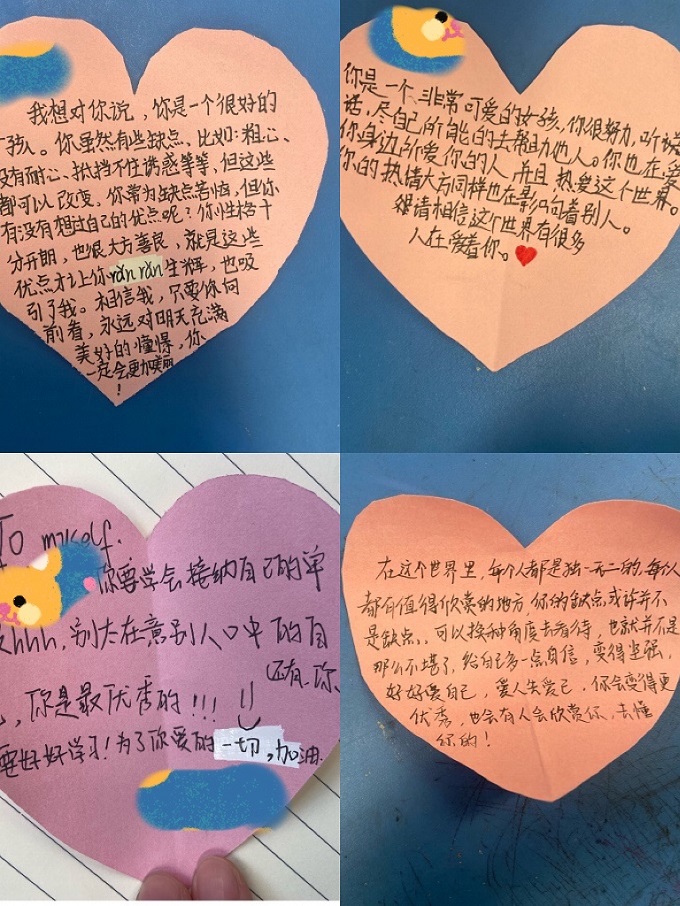 我想对你说，你是一个很好的
孩。你虽然有些缺点、比如：粗心、
没有耐心、抵挡不住诱惑等等，但这些
都可以改变，你常为缺点苦恼，但你
有没有想过自己的优点呢？你性格十
分开朗，也很大方善良，就是这些
优点才让你rǎn rǎn生辉，也吸
引了我。相信我，只要你向
前看，永远对明天充满
美好的憧憬，你
一定会更加美丽
！
你是一个、非常可爱的女孩、你很努力，听说
话，尽自己所能的去帮助他人。你也在爱
你身边所爱你的人 并且 热爱这个世界。
你的热情大方同样也在影响着别人。
请相信这个世界有很多
人在爱着你。
To myself.
你要学会接纳自己的单
hhh，别太在意别人口中的自
还有、你、
，你是最优秀的！！！
要好好学习！为了你爱的一切，加油.
在这个世界里，每个人都是独一无二的，每个人
都有值得欣赏的地方，你的缺点，或许并不
是缺点，可以换种角度去看待，也就并不是
那么不堪了，给自己多一点自信，变得坚强，
好好爱自己，爱人先爱己，你会变得更
优秀，也会有人会欣赏你，去懂
你的！